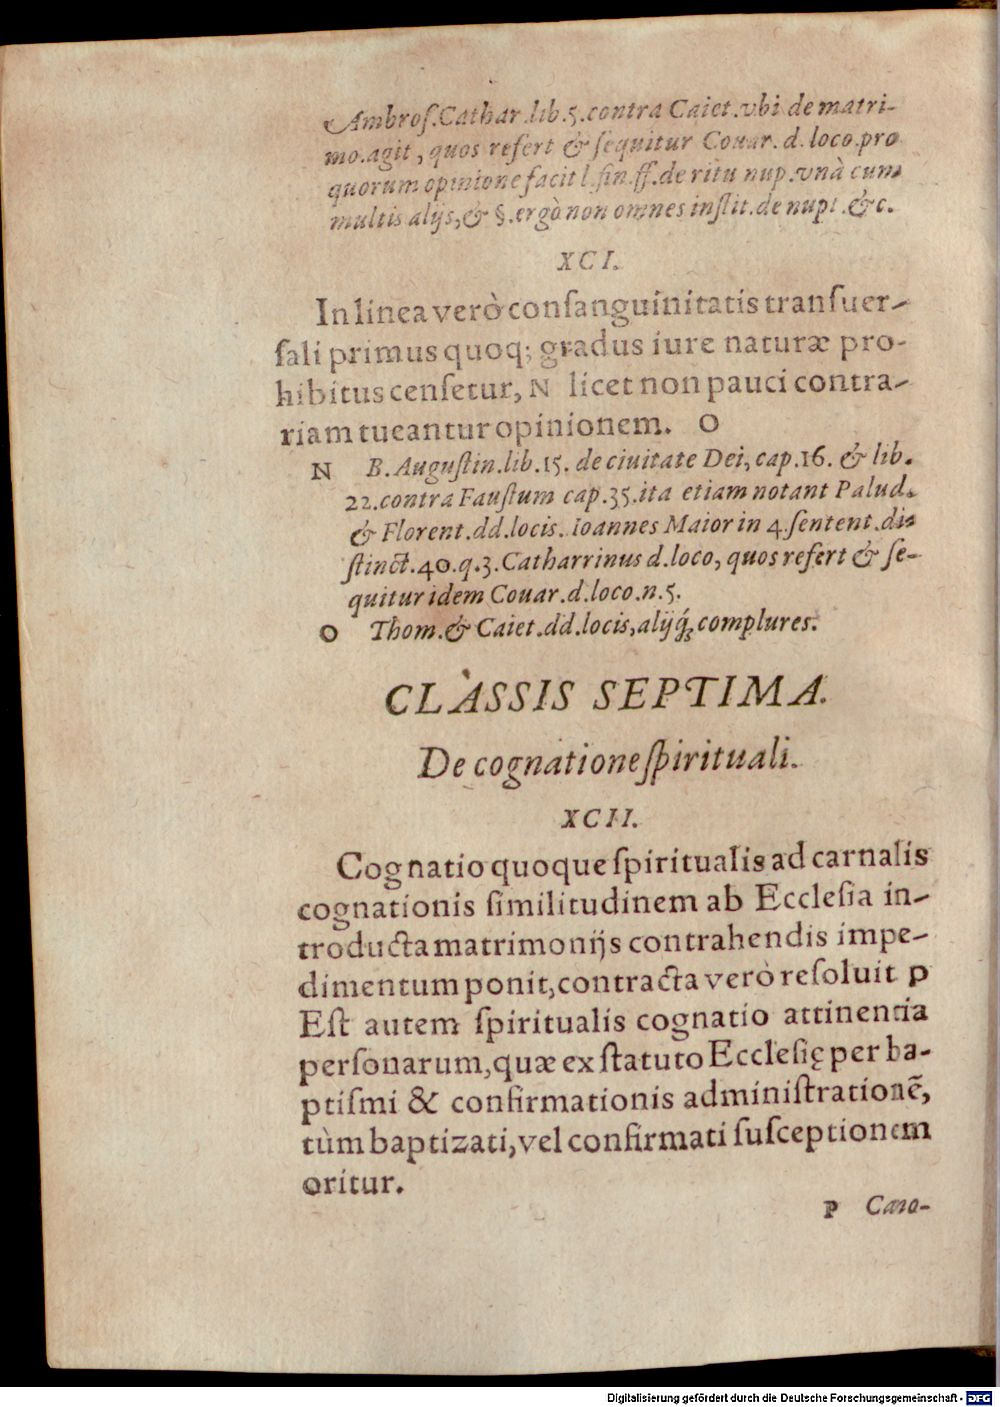 Ambroſ. Cathar. lib. 5. contra Caiet. vbi de matri-
mo. agit, quos refert & ſequitur Couar. d. loco. pro
quorum opinione facit l. fin. ff. de ritu nup. vnà cum
multis alijs, & §. ergò non omnes inſtit. de nupt. &c.
XCI.
In linea verò conſanguinitatis transuer-
ſali primus quoq; gradus iure naturæ pro-
hibitus cenſetur, N licet non pauci contra-
riam tueantur opinionem. O
N B. Auguſtin. lib. 15. de ciuitate Dei, cap. 16. & lib.
22. contra Fauſtum cap. 35. ita etiam notant Palud.
& Florent. dd. locis. Ioannes Maior in 4. ſentent. di-
ſtinct. 40. q. 3. Catharrinus d. loco, quos refert & ſe-
quitur idem Couar. d. loco. n. 5.
O Thom. & Caiet. dd. locis, alijq́; complures.
CLASSIS SEPTIMA.
De cognatione ſpirituali.
XCII.
Cognatio quoque ſpiritualis ad carnalis
cognationis ſimilitudinem ab Eccleſia in-
troducta matrimonijs contrahendis impe-
dimentum ponit, contracta verò reſoluit P
Eſt autem ſpiritualis cognatio attinentia
perſonarum, quæ ex ſtatuto Eccleſię per ba-
ptiſmi & confirmationis adminiſtrationẽ,
tùm baptizati, vel confirmati ſuſceptionem
oritur.
P Cano-
Digitalisierung gefördert durch die Deutsche Forschungsgemeinschaft - DFG